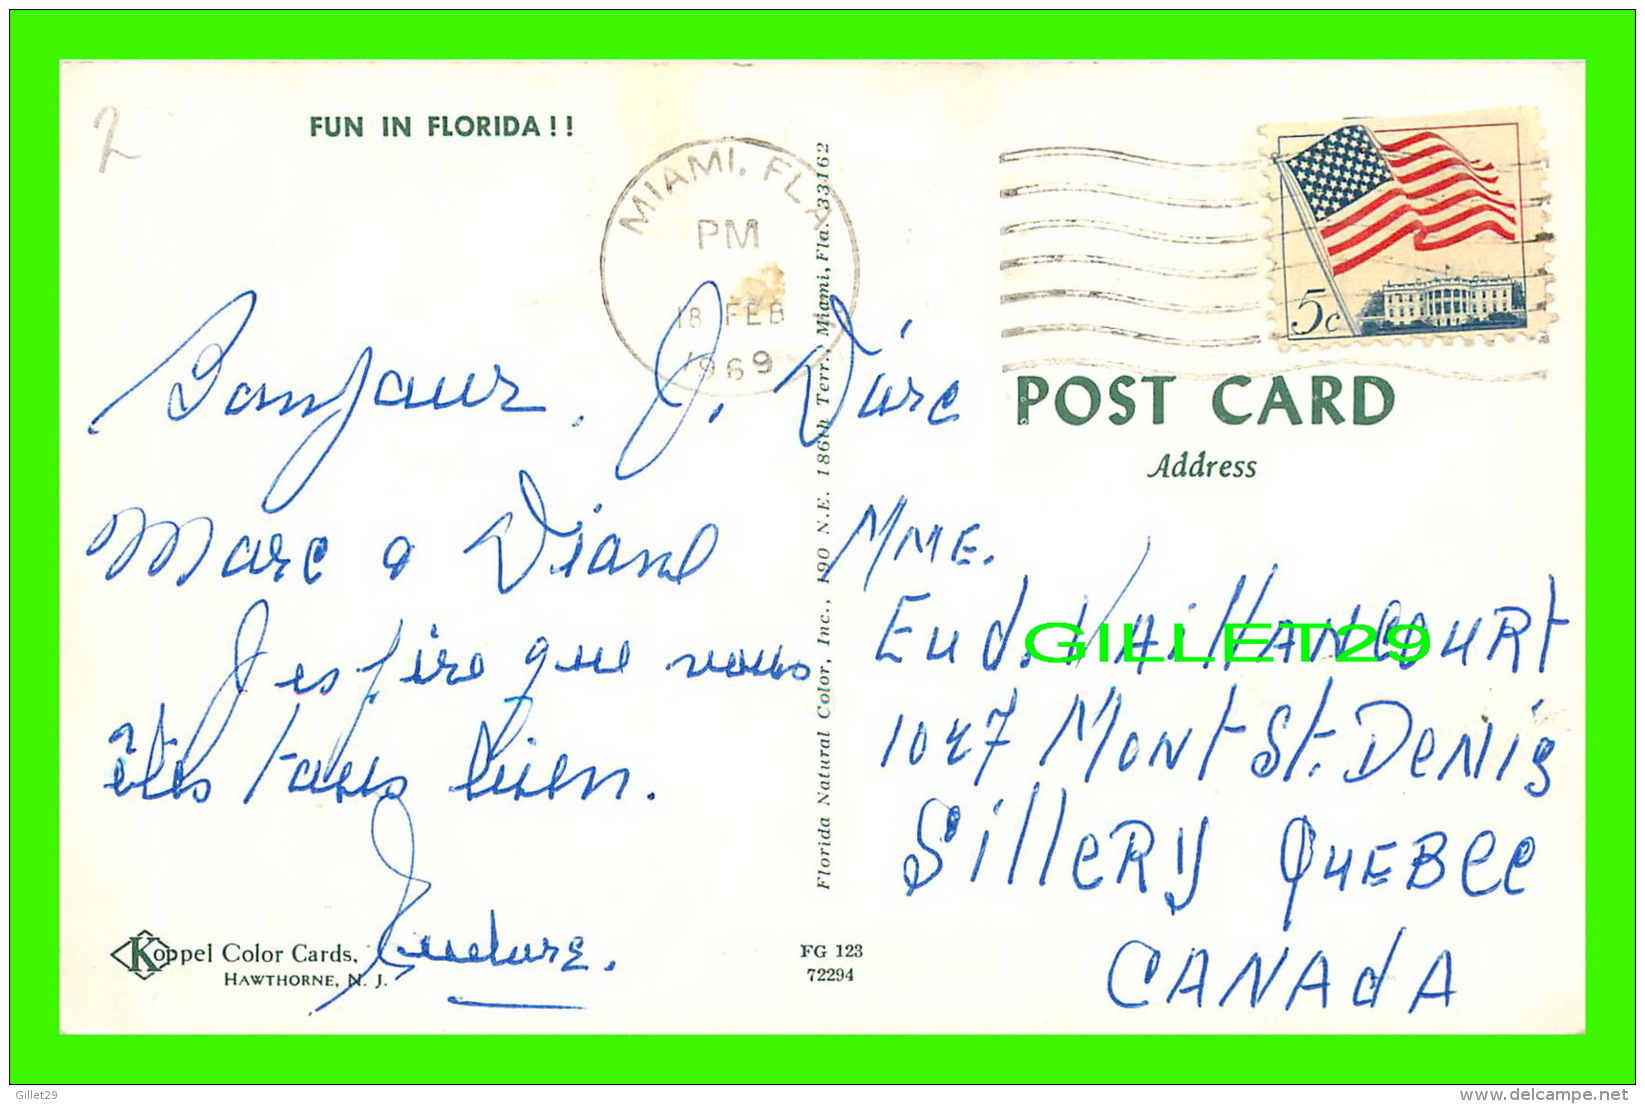 2
FUN IN FLORIDA!!
MIAMI, FLA
PM
18 FEB
1969
5c
Bonjour. J. D'arc
Marc & Diane
J'espère que vous
êtes tous bien.
Eudore.
Koppel Color Cards,
HAWTHORNE, N. J.
FG 123
72294
Florida Natural Color, Inc., 190 N.E. 186th Terr. Miami, Fla. 33162
POST CARD
Address
MME.
Eud. VAillANCOURt
1047 MONt St. DeNis
SilleRy QUEBec
CANAdA
GILLET29
Gillet29
http://www.delcampe.net